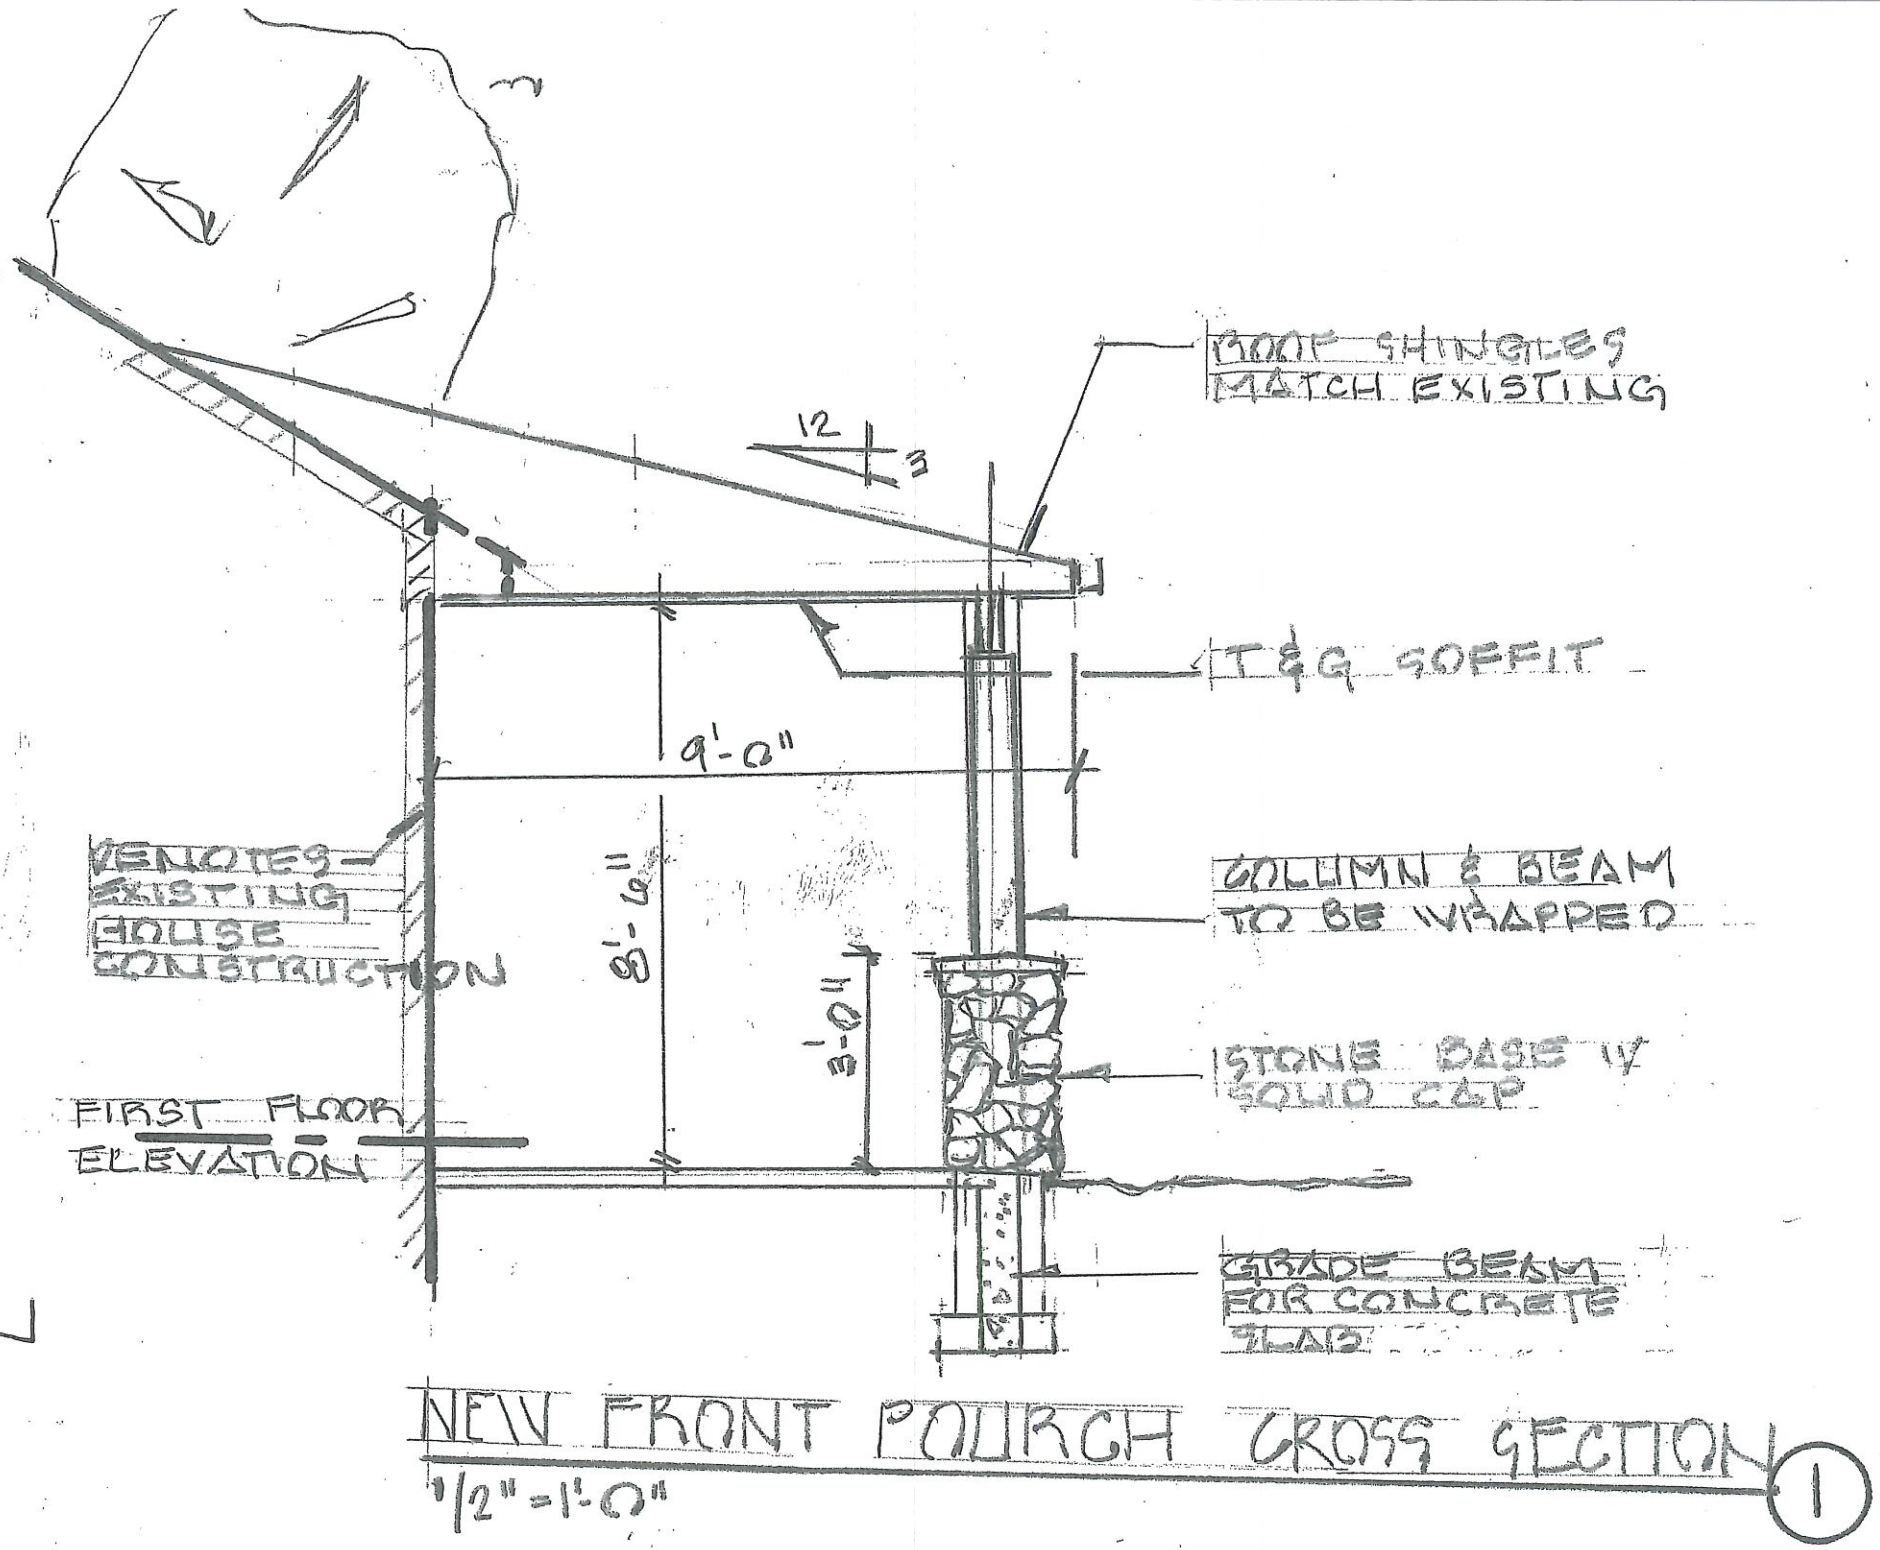 ROOF SHINGLES
MATCH EXISTING
12
3
T & G SOFFIT
9'-0"
DENOTES
EXISTING
HOUSE
CONSTRUCTION
8'-6"
COLUMN & BEAM
TO BE WRAPPED
3'-0"
STONE BASE W/
SOLID CAP
FIRST FLOOR
ELEVATION
GRADE BEAM
FOR CONCRETE
SLAB
NEW FRONT POURCH CROSS SECTION
1
1/2" = 1'-0"